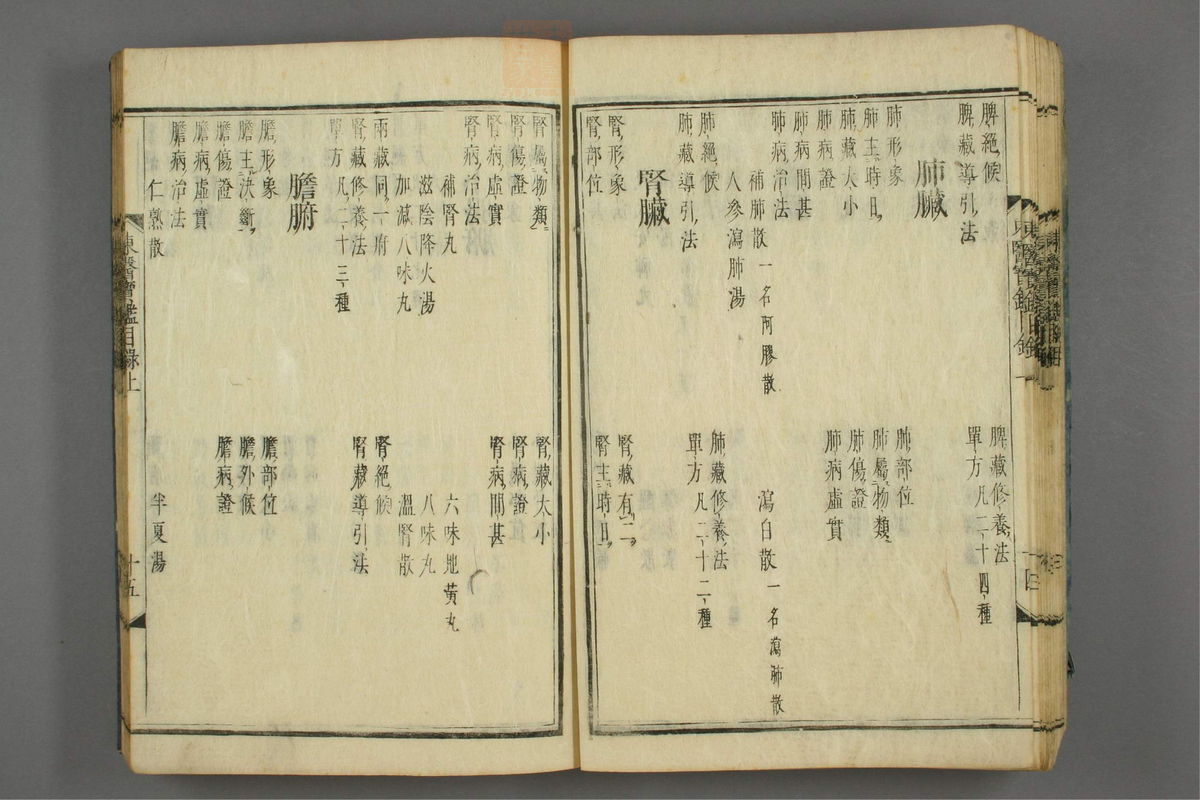 脾絶候
脾藏修養法
脾藏導引法
單方凡二十四種
肺臟
肺形象
肺部位
肺主時日
肺屬物類
肺藏大小
肺傷證
肺病證
肺病虛實
肺病間甚
肺病治法
補肺散一名阿膠散
瀉白散一名瀉肺散
人參瀉肺湯
肺絶候
肺藏修養法
肺藏導引法
單方凡二十二種
腎臟
腎形象
腎藏有二
腎部位
腎主時日
腎屬物類
腎藏大小
腎傷證
腎病證
腎病虛實
腎病間甚
腎病治法
補腎丸
六味地黄丸
滋陰降火湯
八味丸
加減八味丸
溫腎散
兩藏同一府
腎絶候
腎藏修養法
腎藏導引法
單方凡二十三種
膽腑
膽形象
膽部位
膽主決斷
膽外候
膽傷證
膽病證
膽病虛實
膽病治法
仁熟散
半夏湯
東醫寶鑑目錄上
十五